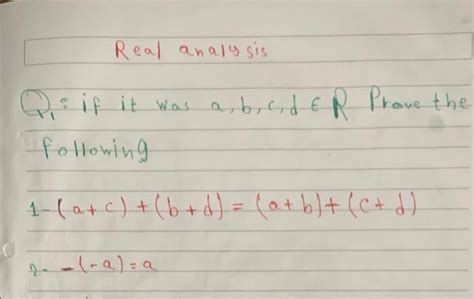 Real analysis
Q1: if it was a, b, c, d ∈ R Prove the
following
1- (a+c) + (b+d) = (a+b)+(c+d)
2- -(-a) = a